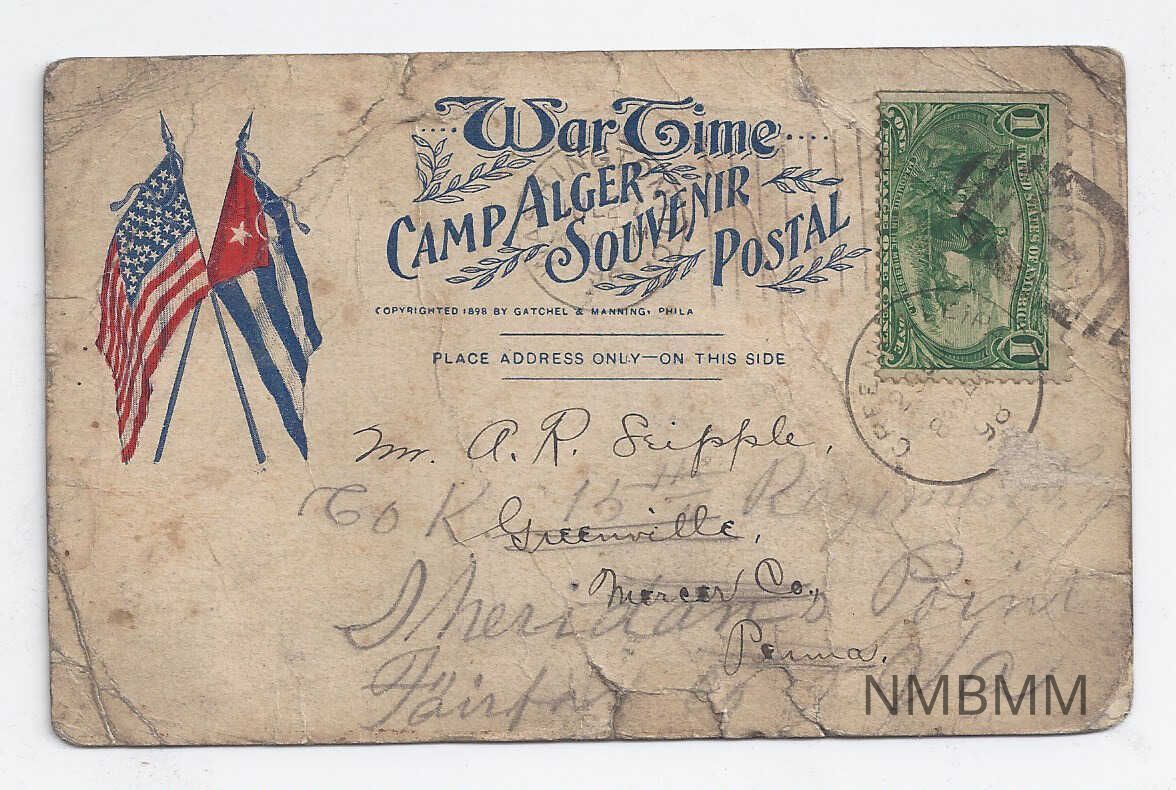 War Time
CAMP ALGER
SOUVENIR
POSTAL
COPYRIGHTED 1898 BY GATCHEL & MANNING, PHILA
PLACE ADDRESS ONLY—ON THIS SIDE
1
1
UNITED STATES OF AMERICA
Mr. A. R. Seipple,
Co K 15TH Regiment
Greenville,
Mercer Co.,
Sheridans Point
Penna.
Fairfax Co Va
NMBMM